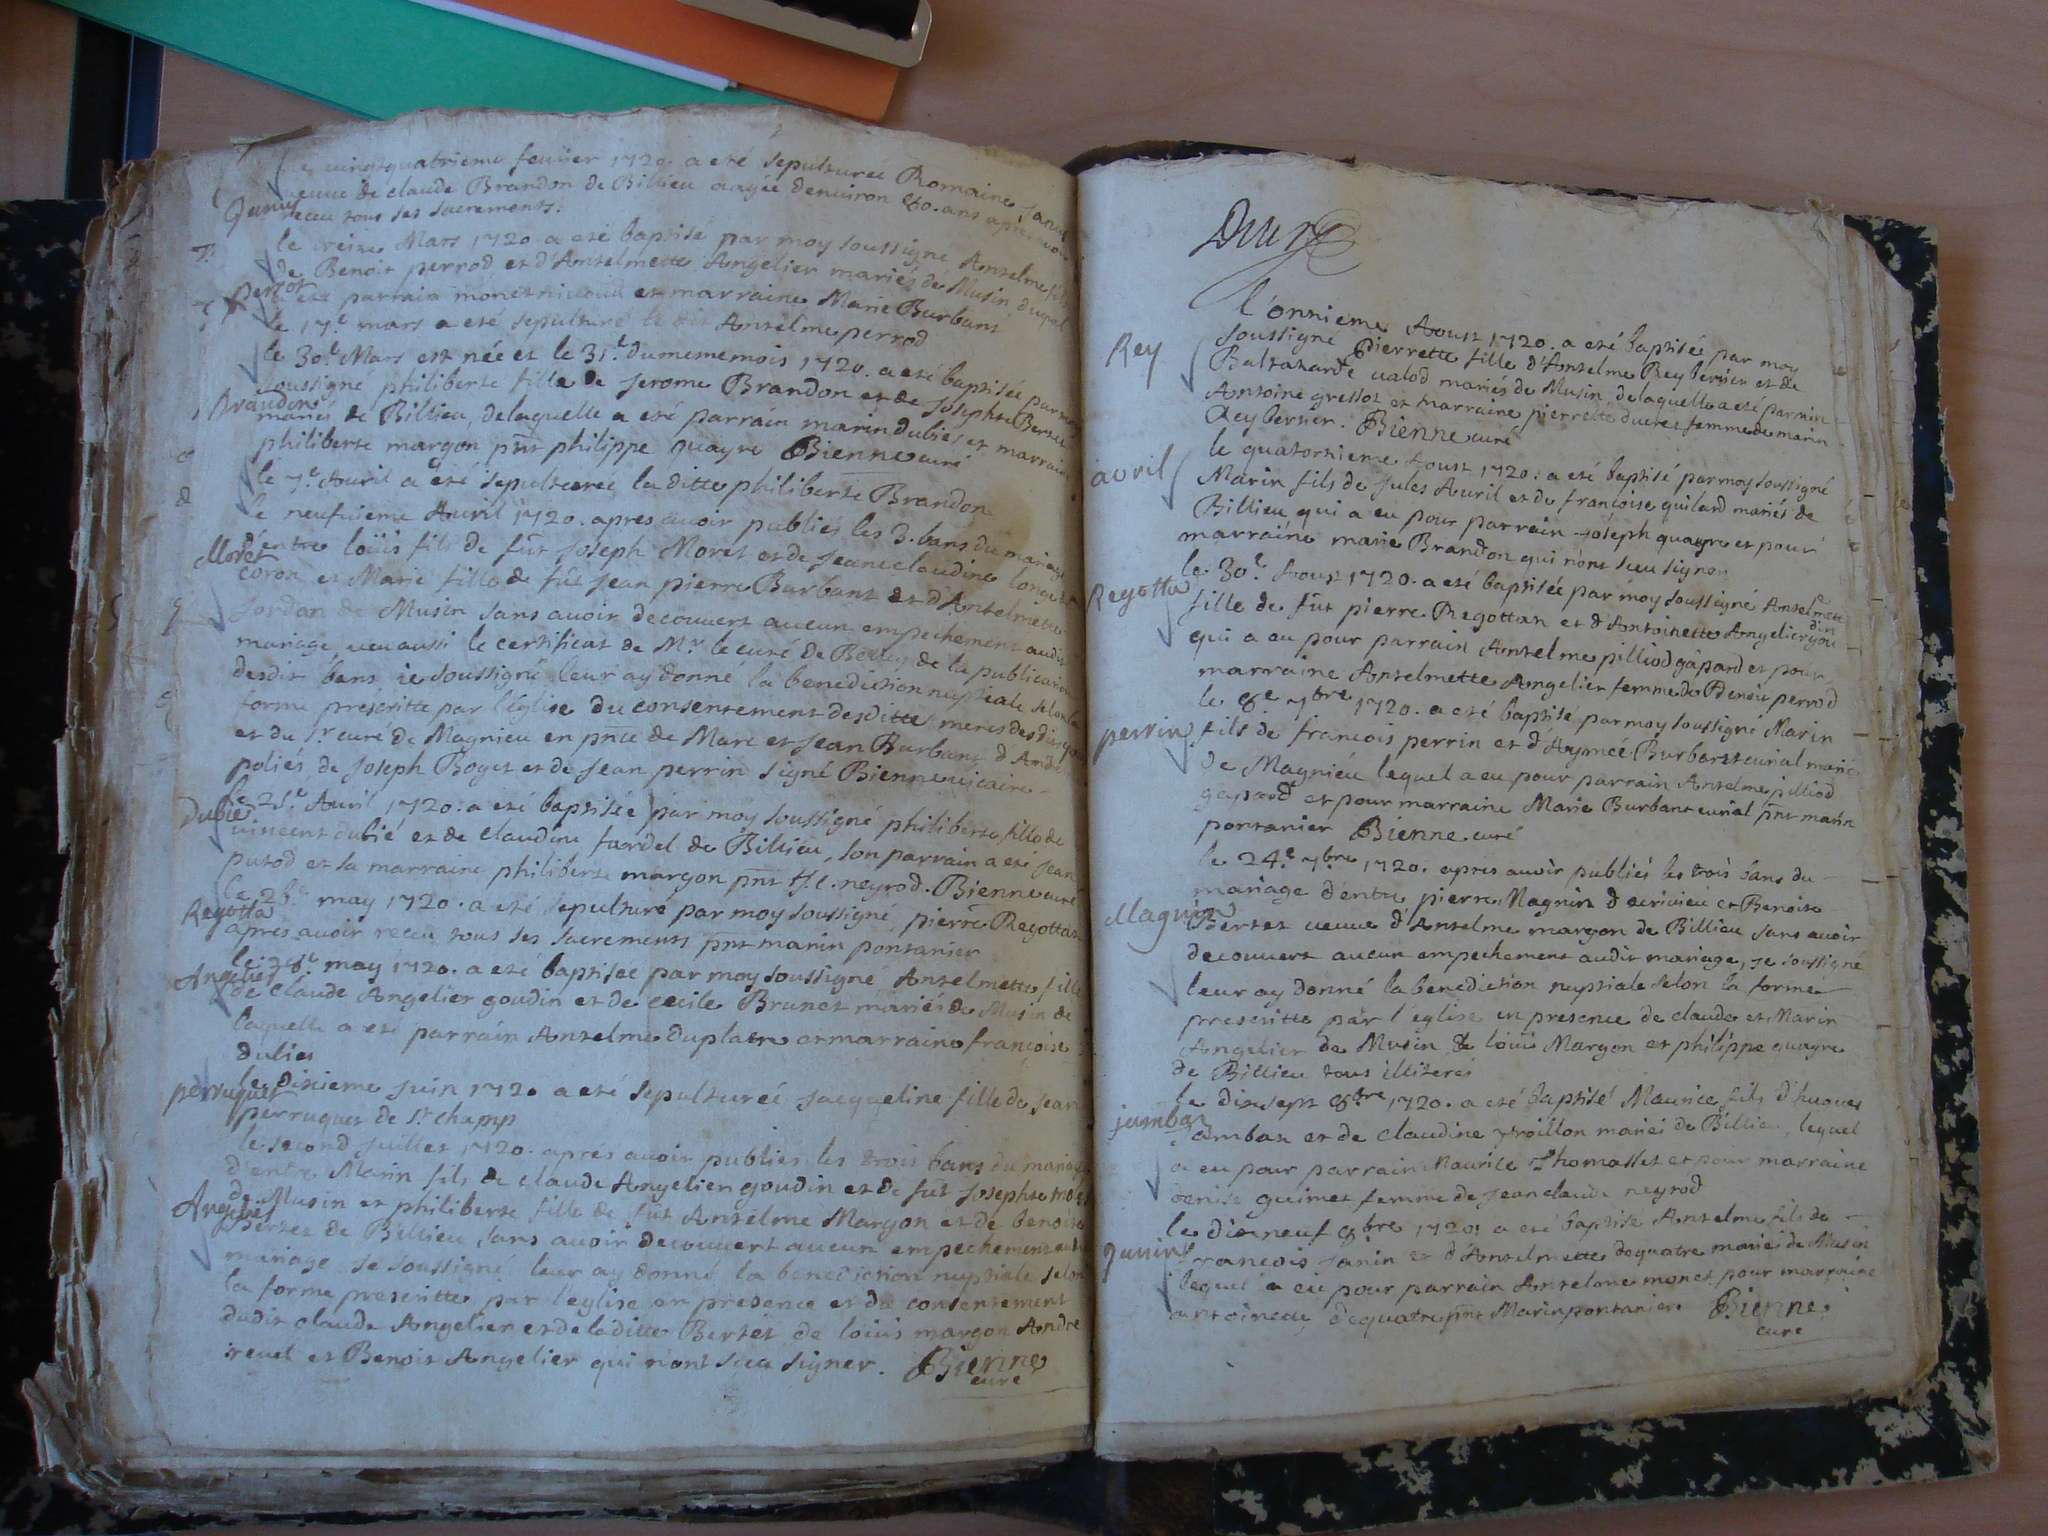 le vingt quatrieme fevrier 1720. a eté sepulturée Romaine Janin
veuve de claude Brandon de Billieu aagée denviron 80. ans apres avoir
Janin
receu tous ses sacrements.
le treize Mars 1720 a eté baptisé par moy soussigné Anselme fils
de Benoit perrod et d'Anselmette Angelier mariés de Musin, duquel
perrot
a eté parrain monet et marraine Marie Burbant
le 17.e mars a eté sepulturé le dit Anselme perrod
le 30.e Mars est née et le 31.e du meme mois 1720. a eté baptisée par moy
soussigné philiberte fille de Jerome Brandon et de Josephte Bertet
Brandon
mariés de Billieu, delaquelle a eté parrain marin dubies et marraine
philiberte margon pnt philippe quayre Bienne curé
le 7.e Avril a eté sepulturee la ditte philiberte Brandon
le neufvieme Avril 1720. apres avoir publiés les 3. bans du mariage
d'entre loüis fils de fût Joseph Moret et de Jeanclaudine longet
Moret
coron et Marie fille de fût Jean pierre Burbant et d'Anselmette
Jordan de Musin sans avoir decouvert aucun empechement audit
mariage veu aussi le certificat de Mr. le curé de Belley de la publication
desdit bans ie soussigné leur ay donné la benediction nuptiale selon la
forme prescritte par l'église du consentement desdittes meres des dits
et du Sr curé de Magnieu en pnce de Marc et Jean Burbant d'André
poliés de Joseph Boget et de Jean perrin signé Bienne vicaire
le 21.e Avril 1720. a eté baptisée par moy soussigné philiberte fille de
Dubié
vincent dubié et de claudine tardel de Billieu, son parrain a eté Jean
putod et sa marraine philiberte margon pnt J. C. neyrod. Bienne curé
le may 1720. a eté sepulturé par moy soussigné pierre Regottan
Regotta
apres avoir receu tous ses sacrements pnt marin pontanier
le may 1720. a eté baptisée par moy soussigné Anselmette fille
Angelier
de claude Angelier goudin et de cecile Brunet mariés de Musin de
laquelle a eté parrain Anselme duplatre et marraine francoise
dubies
le dixieme Juin 1720 a eté sepulturée Jacqueline fille de Jean
perruquet
perruquet de St champ
le second Juillet 1720. aprés avoir publiés les trois bans du mariage
d'entre Marin fils de claude Angelier goudin et de fût Josephte
de Musin et philiberte fille de fût Anselme Margon et de benoite
Angelier
Bertet de Billieu, sans avoir decouvert aucun empechement audit
mariage je soussigné leur ay donné la benediction nuptiale selon
la forme prescritte par l'eglise en presence et du consentement
dudit claude Angelier et de la ditte Bertet de loüis margon André
treuet et Benoit Angelier qui n'ont sceu signer. Bienne
curé
l'onzieme Aoust 1720. a eté baptisée par moy
Rey
soussigné pierrette fille d'Anselme Rey bersier et de
Baltazarde valod mariés de Musin, delaquelle a eté parrain
Antoine gressot et marraine pierrette ducret femme de marin
Rey bersier. Bienne curé
le quatorzieme Aoust 1720. a eté baptisé par moy soussigné
avril
Marin fils de Jules Avril et de francoise quilard mariés de
Billieu qui a eu pour parrain Joseph quayre et pour
marraine marie Brandon qui n'ont sceu signer
le 30.e Aoust 1720. a eté baptisée par moy soussigné Anselmette
Regotta
fille de fût pierre Regottan et d'Antoinette Angelier goudin
qui a eu pour parrain Anselme pilliod gapard et pour
marraine Anselmette Angelier femme de Benoit perrod
le 8.e 7bre 1720. a eté baptisé par moy soussigné Marin
perrin
fils de francois perrin et d'Aymée Burbant curial mariés
de Magnieu lequel a eu pour parrain Anselme pilliod
gapard et pour marraine Marie Burbant curial pnt marin
pontanier Bienne curé
le 24.e 7bre 1720. apres avoir publiés les trois bans du
mariage d'entre pierre Magnin d'ecrivieu et Benoite
Magnin
Bertet veuve d'Anselme margon de Billieu sans avoir
decouvert aucun empechement audit mariage, je soussigné
leur ay donné la benediction nuptiale selon la forme
prescritte par l'église en presence de claude et Marin
Angelier de Musin de loüis Margon et philippe quayre
de Billieu tous illiterés
le dix sept 8bre 1720. a eté baptisé Maurice fils d'hugues
jamban
Jamban et de claudine troillon mariés de Billieu, lequel
a eu pour parrain Maurice Thomasset et pour marraine
denise guimet femme de Jean claude neyrod
le dixneuf 8bre 1720. a eté baptisé Anselme fils de
Janin
francois Janin et d'Anselmette dequatre mariés de Musin
lequel a eu pour parrain Anselme monet pour marraine
antoinette dequatre pnt Marin pontanier Bienne
curé